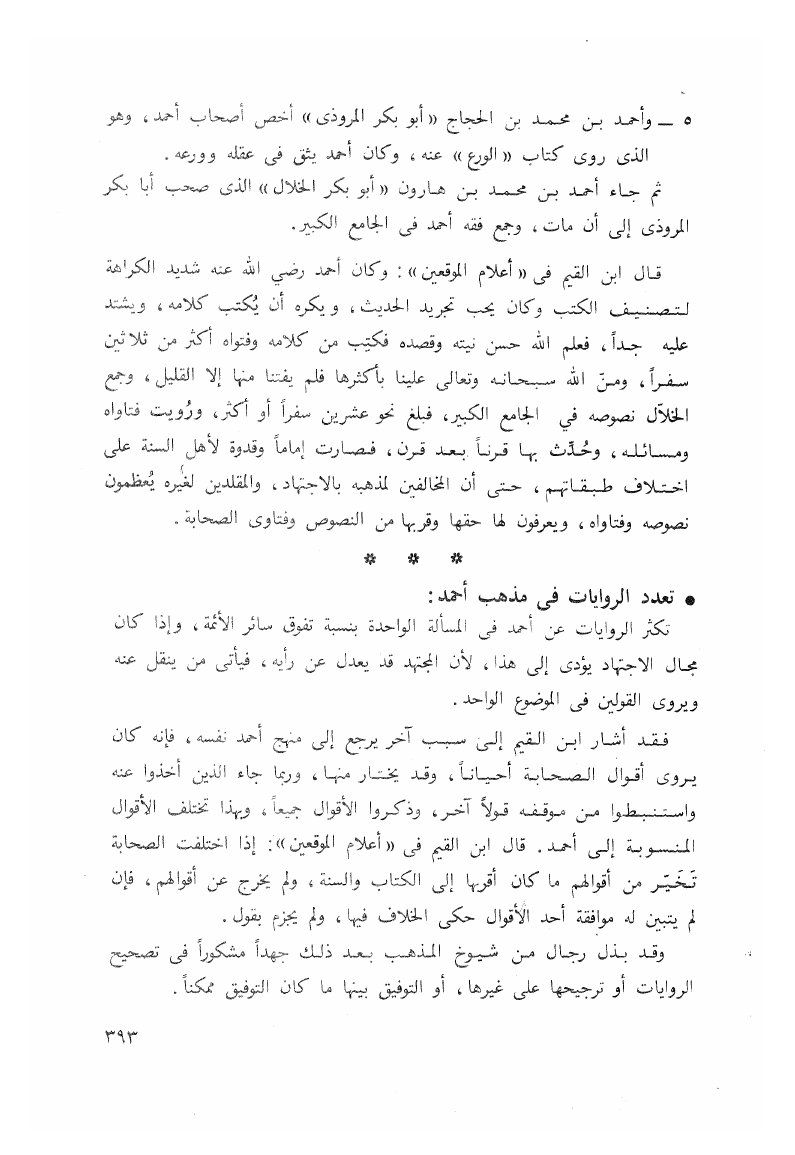 ٥ ــ وأحمد بـن محـمـد بن الحجاج «أبو بكر المروذى» أخص أصحاب أحمد، وهو
الذى روى كتاب «الورع» عنه، وكان أحمد يثق فى عقله وورعه.
ثم جـاء أحـمـد بـن محـمـد بـن هـارون «أبو بكر الخلال» الذى صحب أبا بكر
المروذى إلى أن مات، وجمع فقه أحمد فى الجامع الكبير.
قـال ابن القيم فى «أعلام الموقعين»: وكان أحمد رضي الله عنه شديد الكراهة
لـتـصـنـيـف الكتب وكان يحب تجريد الحديث، ويكره أن يُكتب كلامه، ويشتد
عليه جـداً، فعلم الله حسن نيته وقصده فكتِب من كلامه وفتواه أكثر من ثلاثين
سـفـراً، ومـنّ الله سـبـحـانـه وتعالى علينا بأكثرها فلم يفتنا منها إلا القليل، وجمع
الخلاّل نصوصه في الجامع الكبير، فبلغ نحو عشرين سفراً أو أكثر، ورُويت فتاواه
ومـسـائـلـه، وحُـدِّث بـهـا قـرنـاً بـعـد قـرن، فـصـارت إماماً وقدوة لأهل السنة على
اخـتـلاف طـبـقـاتـهـم، حـتـى أن المخالفين لمذهبه بالاجتهاد، والمقلدين لغيره يُعظمون
نصوصه وفتاواه، ويعرفون لها حقها وقربها من النصوص وفتاوى الصحابة.
* * *
● تعدد الروايات فى مذهب أحمد:
تكثر الروايات عن أحمد فى المسألة الواحدة بنسبة تفوق سائر الأئمة، وإذا كان
مجال الاجتهاد يؤدى إلى هذا، لأن المجتهد قد يعدل عن رأيه، فيأتى من ينقل عنه
ويروى القولين فى الموضوع الواحد.
فـقـد أشـار ابـن الـقـيـم إلـى سـبـب آخر يرجع إلى منهج أحمد نفسه، فإنه كان
يـروى أقـوال الـصـحـابـة أحـيـانـاً، وقـد يخـتـار منهـا، وربما جاء الذين أخذوا عنه
واسـتـنـبـطـوا مـن مـوقـفـه قـولاً آخـر، وذكـروا الأقوال جميعاً، وبهذا تختلف الأقوال
المـنـسـوبـة إلـى أحـمـد. قال ابن القيم فى «أعلام الموقعين»: إذا اختلفت الصحابة
تَـخَـيّـر من أقوالهم ما كان أقربها إلى الكتاب والسنة، ولم يخرج عن أقوالهم، فإن
لم يتبين له موافقة أحد الأقوال حكى الخلاف فيها، ولم يجزم بقول.
وقـد بـذل رجـال مـن شـيـوخ المـذهـب بـعـد ذلـك جهداً مشكوراً فى تصحيح
الروايات أو ترجيحها على غيرها، أو التوفيق بينها ما كان التوفيق ممكناً.
٣٩٣